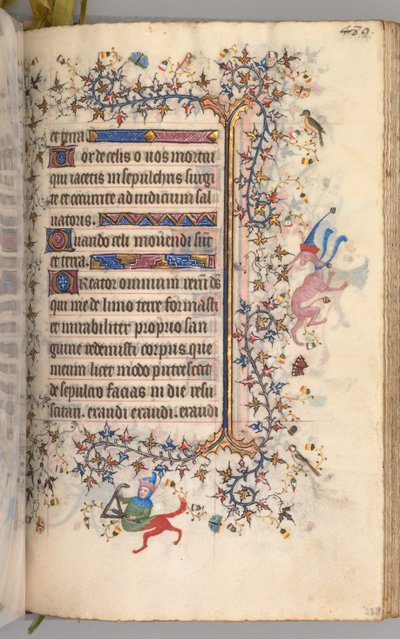 439.
et terra.
Uor de celis o vos mortui
qui iacetis in sepulchris surgi
te et occurrite ad iudicium sal
vatoris.
Quando celi movendi sūt
et terra.
Creator omnium rerū ds
qui me de limo terre formasti
et mirabiliter proprio san
guine redemisti corpus que
meum licet modo putrescat
de sepulcro facias in die resu
scitari. exaudi exaudi. exaudi
218